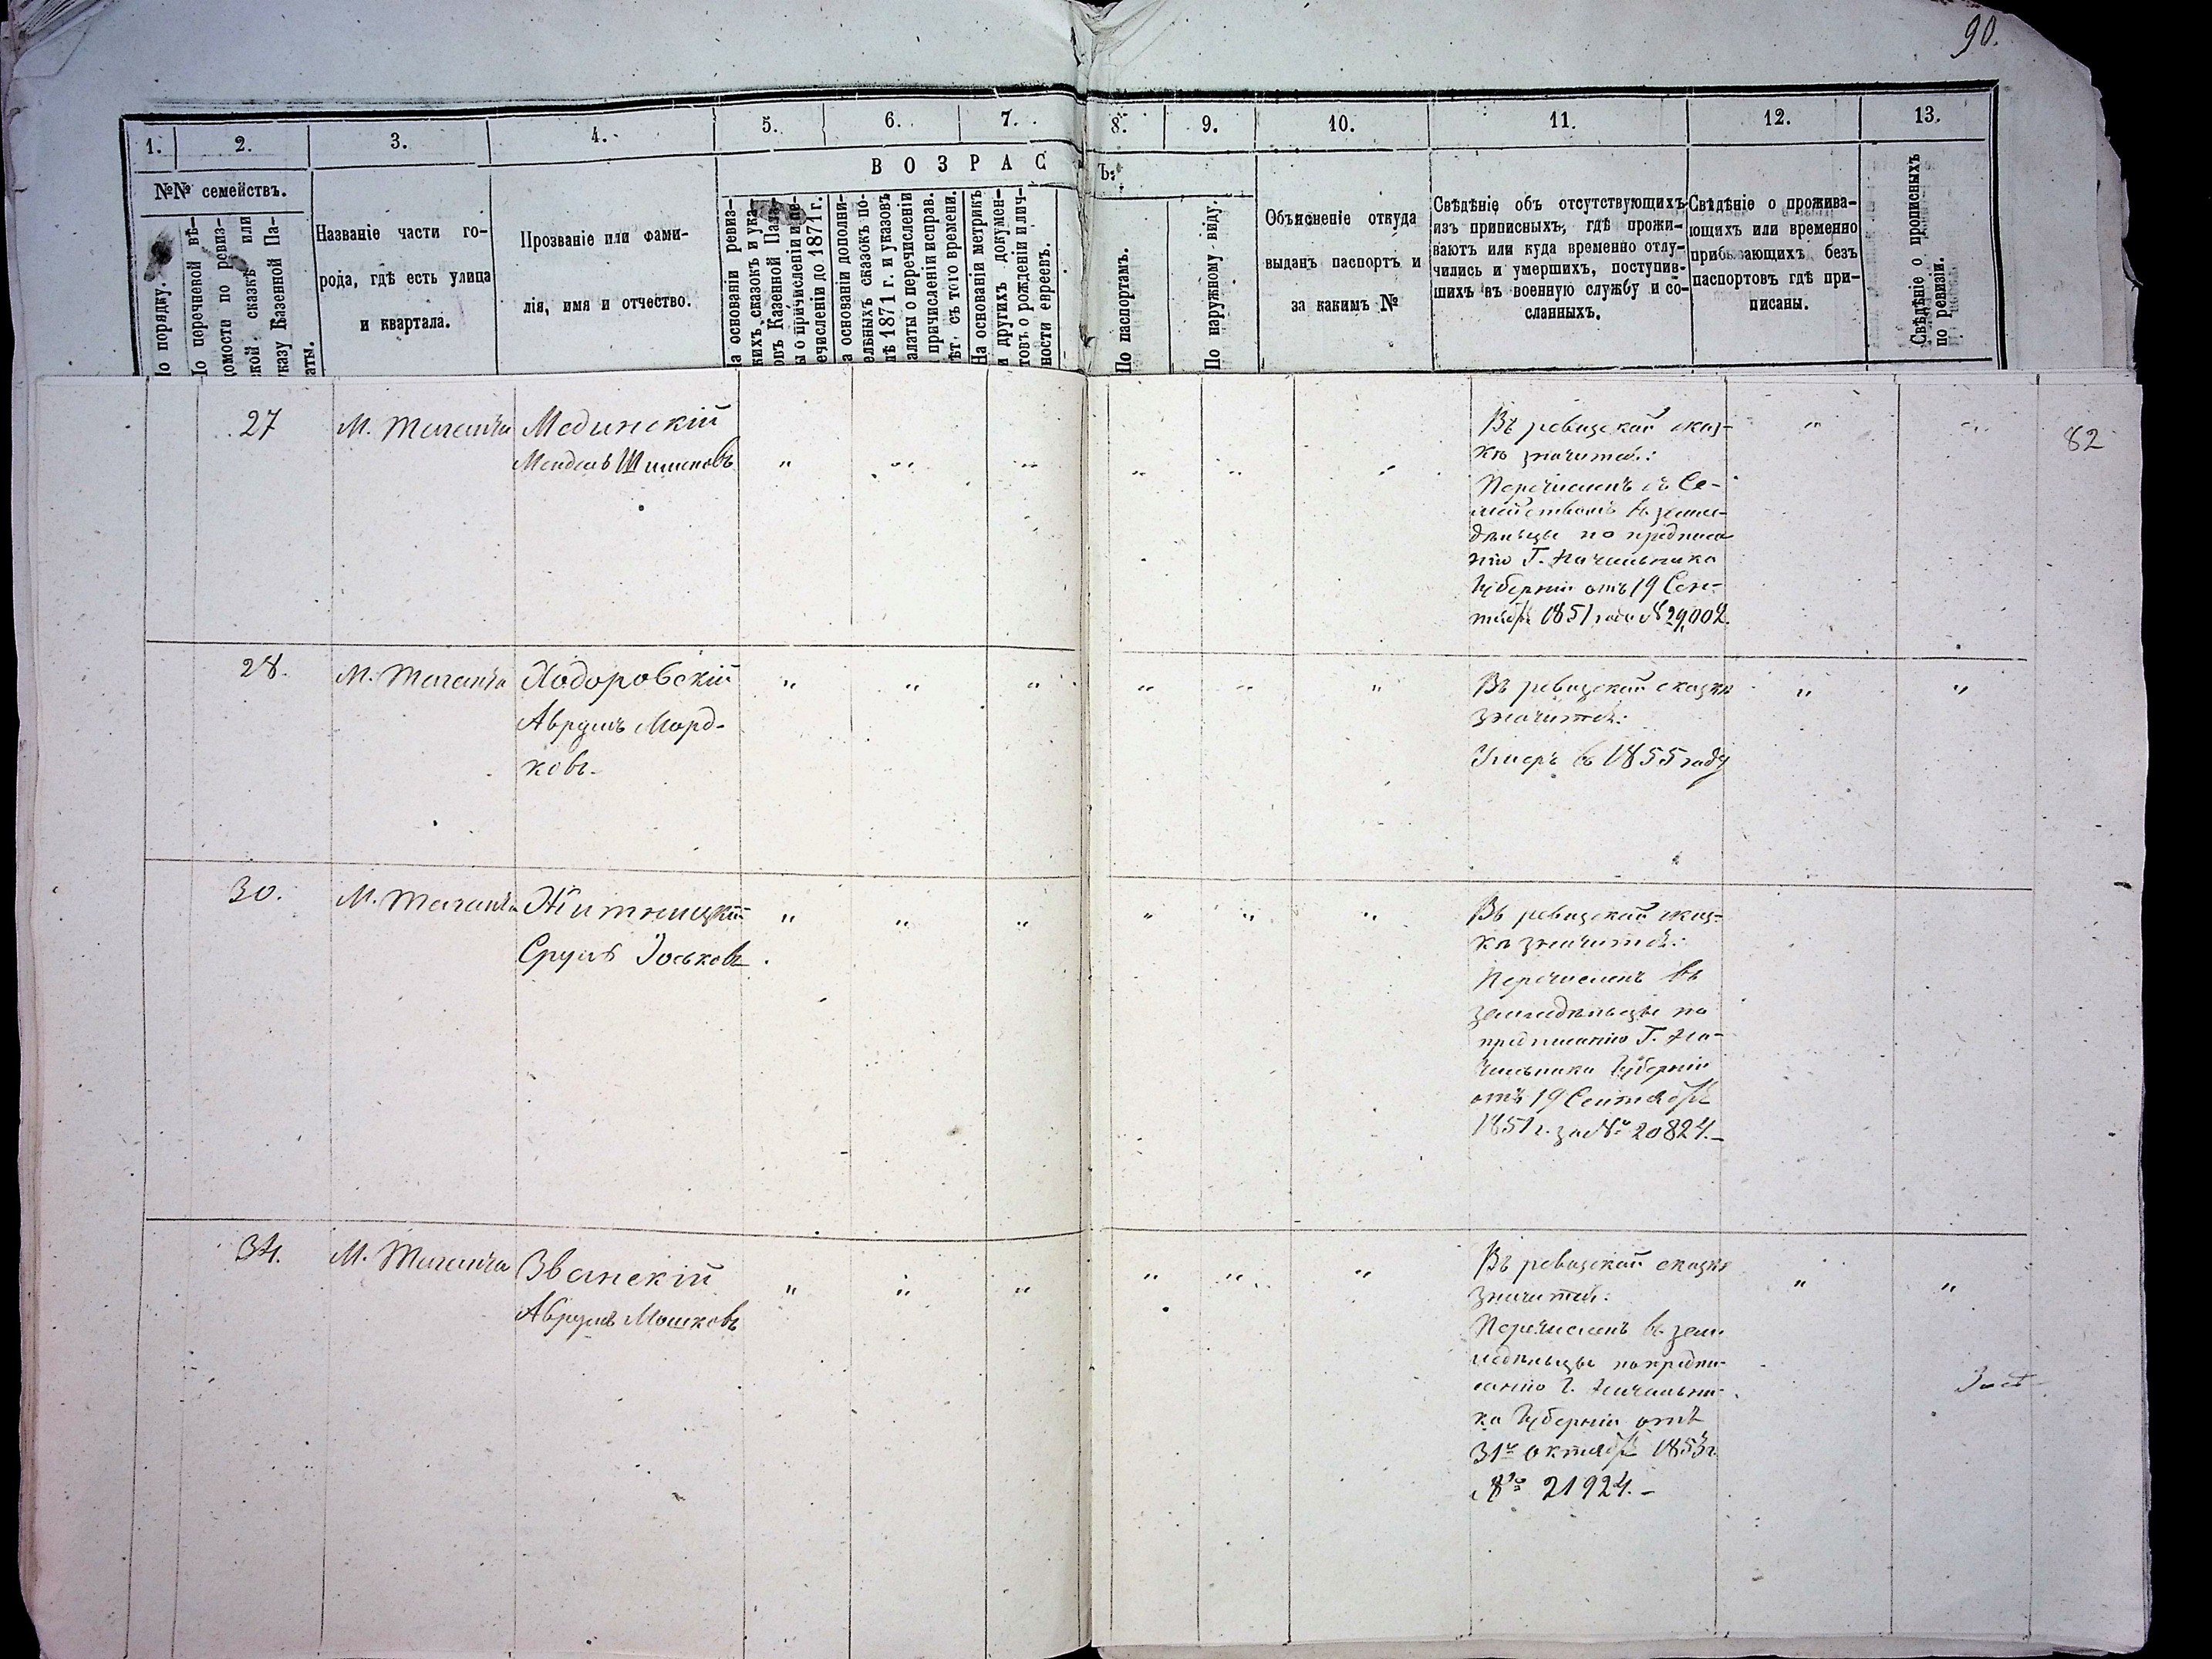 90.
1. 2. 3. 4. 5. 6. 7. 8. 9. 10. 11. 12. 13.
ВОЗРАСТЪ:
№№ семействъ.
По порядку.
По перечневой вѣ-
домости по ревиз-
ской сказкѣ или
указу Казенной Па-
латы.
Названіе части го-
рода, гдѣ есть улица
и квартала.
Прозваніе или фами-
лія, имя и отчество.
На основаніи ревиз-
скихъ сказокъ и ука-
зовъ Казенной Пала-
ты о причисленіи и пе-
речисленіи до 1871 г.
На основаніи дополни-
тельныхъ сказокъ по-
слѣ 1871 г. и указовъ
Палаты о перечисленіи
и причисленіи исправ.
лѣт. съ того времени.
На основаніи метрикъ
и другихъ докумен-
товъ о рожденіи и лич-
ности евреевъ.
По паспортамъ.
По наружному виду.
Объясненіе откуда
выданъ паспортъ и
за какимъ №
Свѣдѣніе объ отсутствующихъ
изъ приписныхъ, гдѣ прожи-
ваютъ или куда временно отлу-
чились и умершихъ, поступив-
шихъ въ военную службу и со-
сланныхъ.
Свѣдѣніе о прожива-
ющихъ или временно
прибывающихъ безъ
паспортовъ гдѣ при-
писаны.
Свѣдѣніе о прописныхъ
по ревизіи.
82
27 М. Таганча Мединскій
Мендель Шимоновъ " " " " " " " "
Въ ревизской сказ-
кѣ значится:
Перечисленъ съ Се-
мействомъ въ земле-
дѣльцы по предписа
нію Г. Начальника
Губерніи отъ 19 Сен-
тября 1851 года № 29,002.
28. М. Таганча Ходоровскій " " " " " " " "
Аврумъ Морд-
ковъ.
Въ ревизской сказкѣ
значится:
Умеръ въ 1855 году
30. М. Таганча Житницкій " " " " " "
Сруль Іоськовъ.
Въ ревизской сказ-
кѣ значится:
Перечисленъ въ
земледѣльцы по
предписанію Г. На-
чальника Губерніи
отъ 19 Сентября
1851 г. за № 20824.
34. М. Таганча Званскій " " " " " " " "
Аврумъ Мошковъ
Въ ревизской сказкѣ
значится:
Перечисленъ въ зем
ледѣльцы по предпи-
санію Г. Начальни-
ка Губерніи отъ
31го октября 1853 г.
№ 21924.